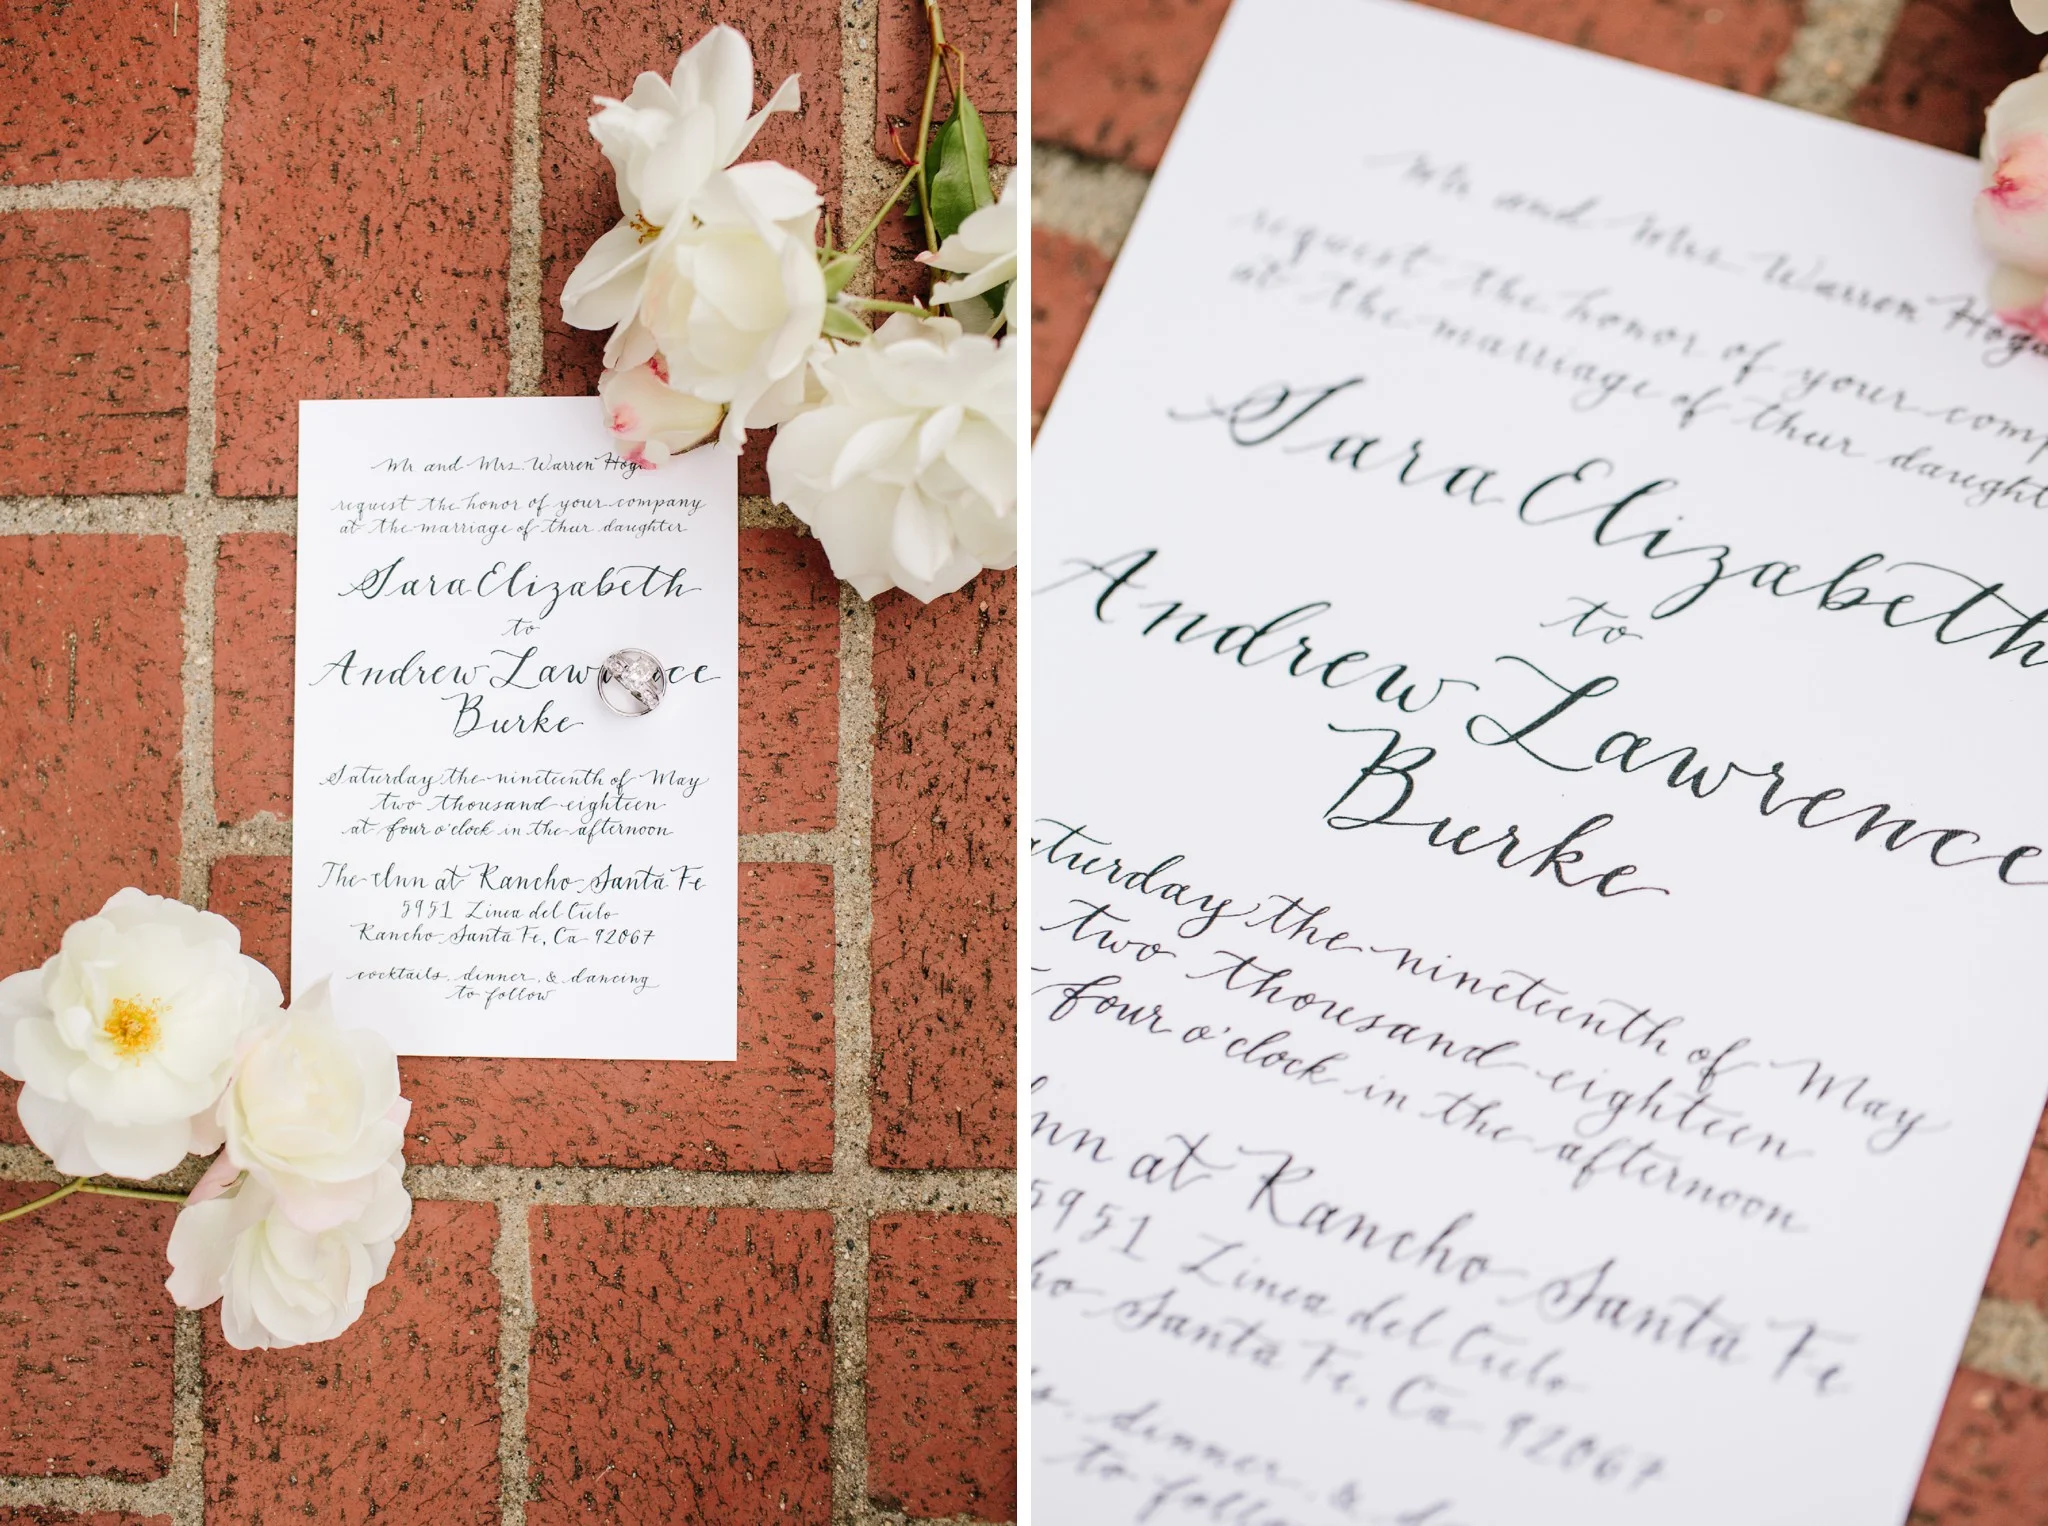 Mr and Mrs. Warren
request the honor of your company
at the marriage of their daughter
Sara Elizabeth
to
Andrew Lawrence
Burke
Saturday the nineteenth of May
two thousand eighteen
at four o'clock in the afternoon
The Inn at Rancho Santa Fe
5951 Linea del Cielo
Rancho Santa Fe, Ca 92067
cocktails, dinner, & dancing
to follow
Mr and Mrs. Warren
request the honor of your
at the marriage of their
Sara Elizabeth
to
Andrew Lawrence
Burke
the nineteenth of May
two thousand eighteen
four o'clock in the afternoon
at Rancho Santa Fe
5951 Linea del Cielo
Santa Fe, Ca 92067
dinner, &
to follow